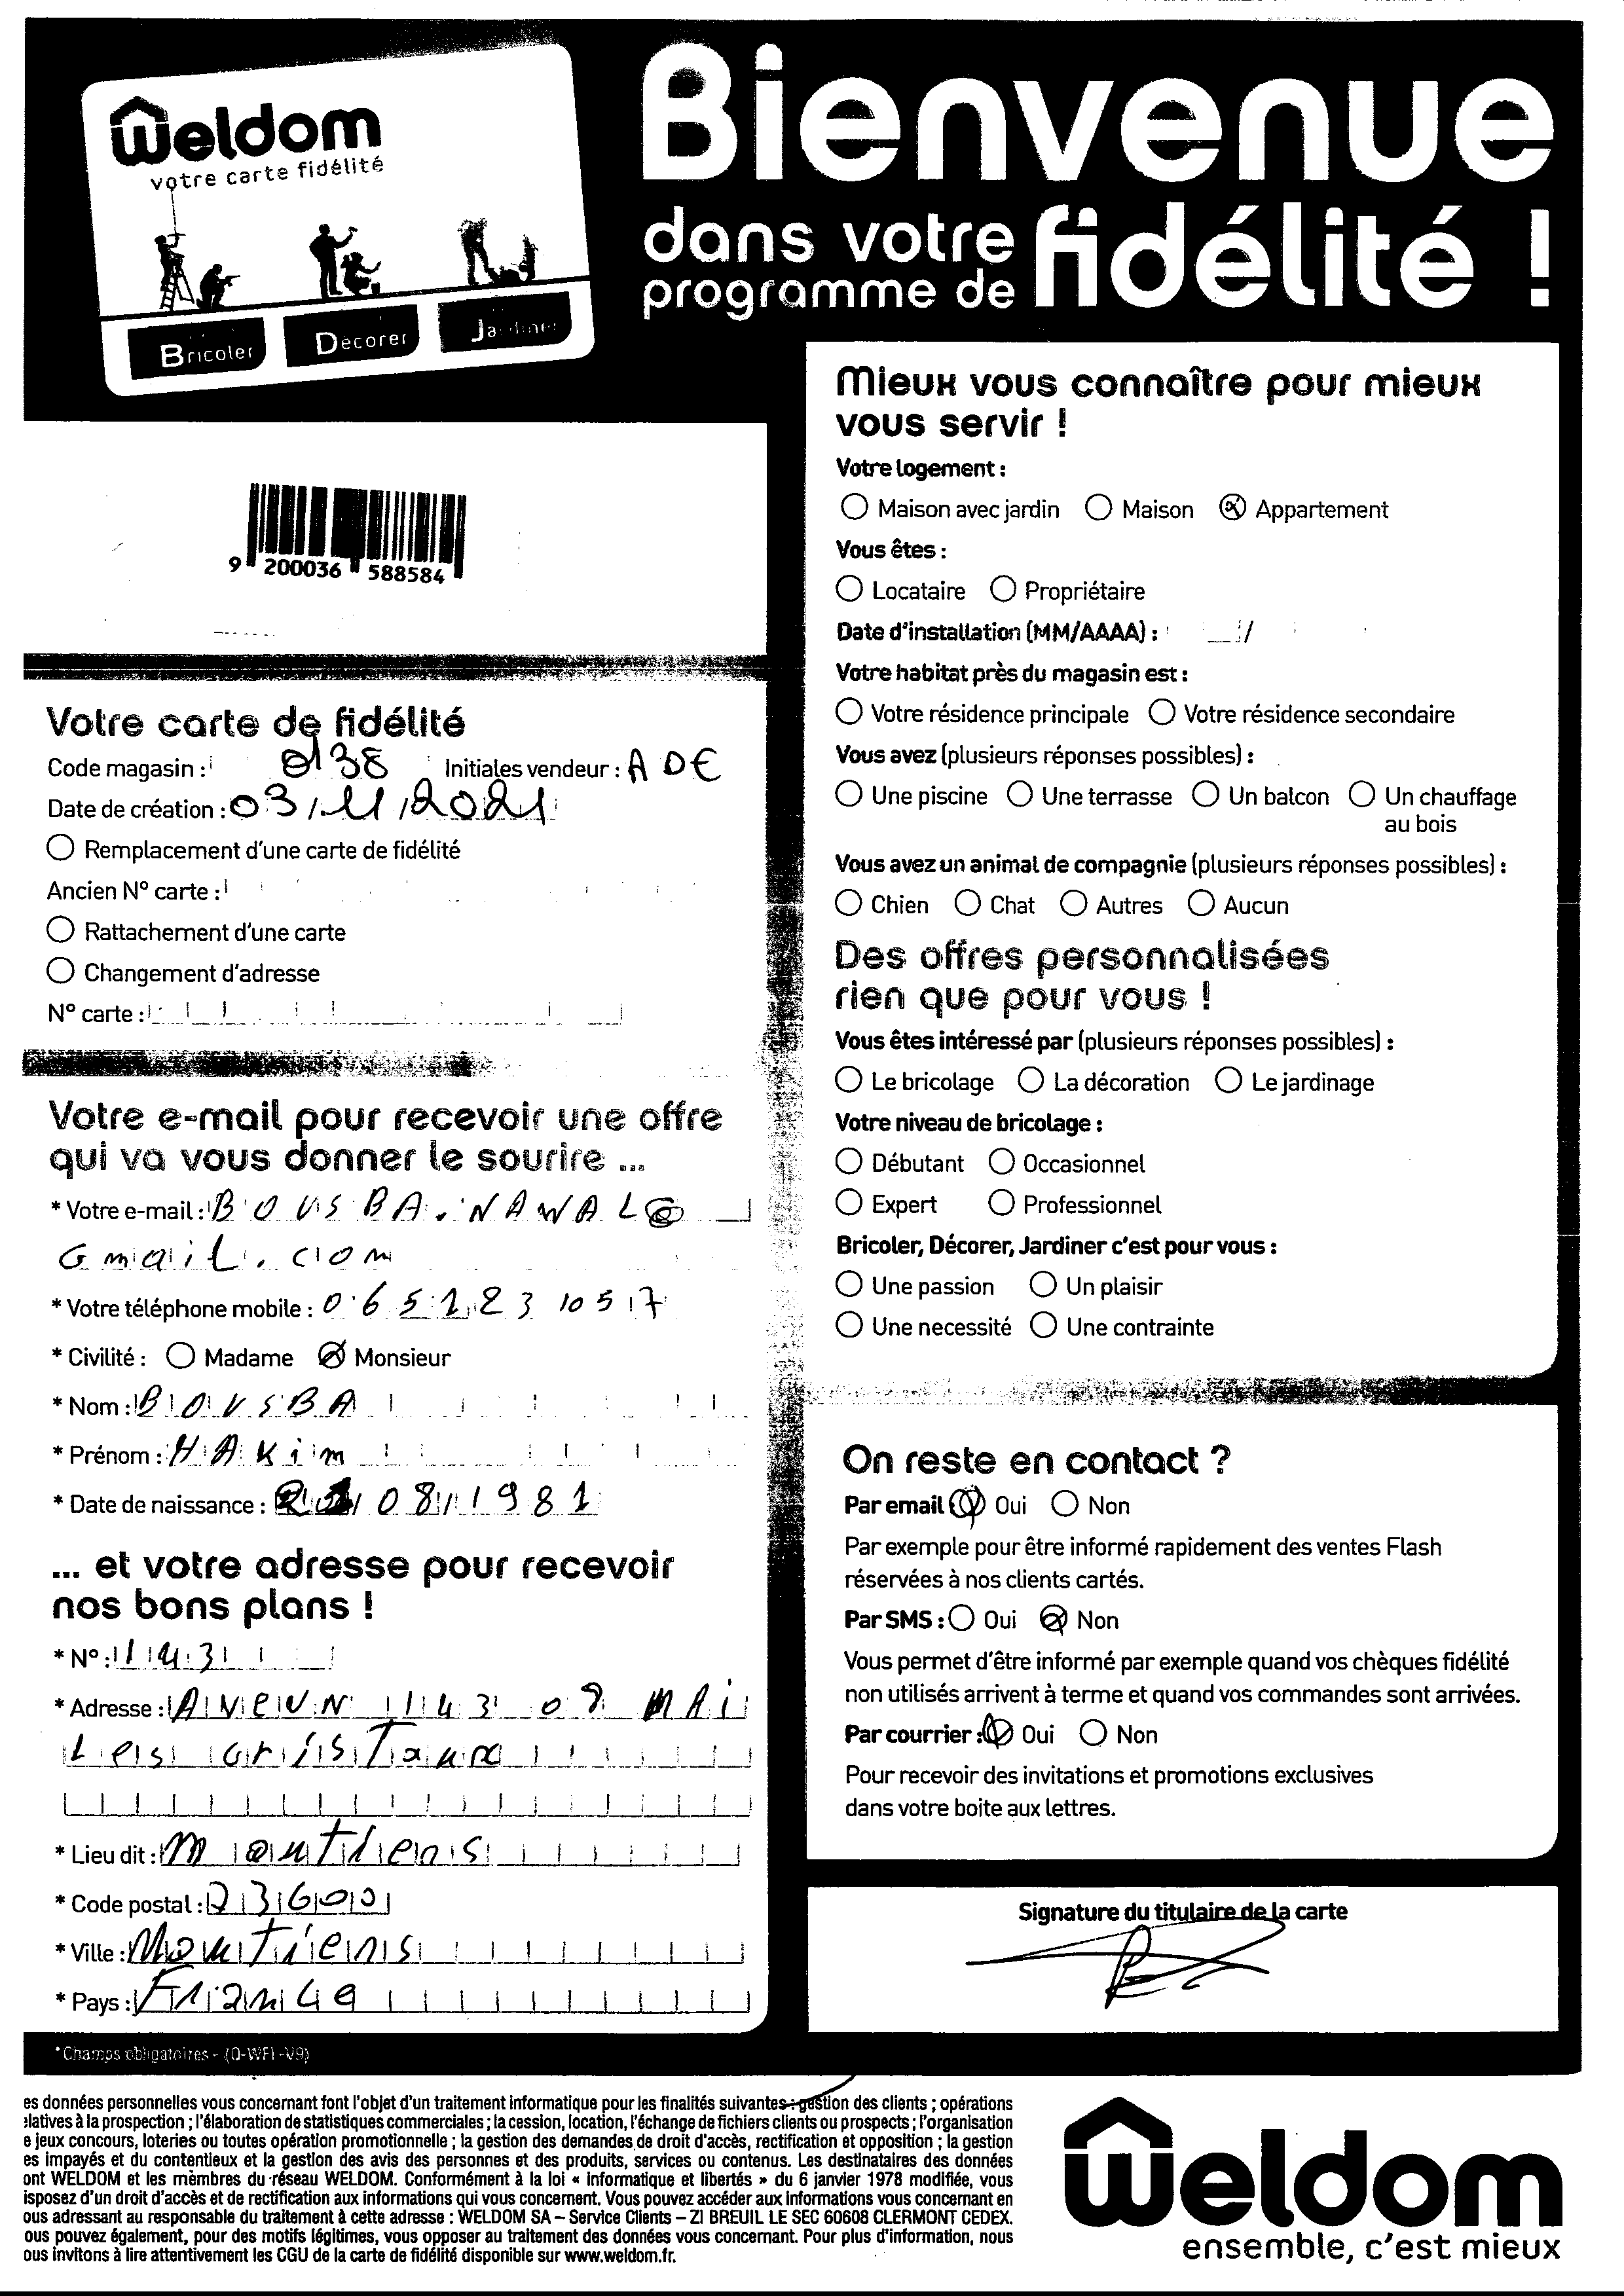 Weldom
votre carte fidélité
Bricoler
Décorer
Jardiner
Bienvenue
dans votre
programme de fidélité !
9 200036 588584
Votre carte de fidélité
Code magasin : 0138 Initiales vendeur : A D E
Date de création : 03/11/2021
Remplacement d'une carte de fidélité
Ancien N° carte :
Rattachement d'une carte
Changement d'adresse
N° carte :
Votre e-mail pour recevoir une offre
qui va vous donner le sourire ...
* Votre e-mail : BOUSBA.NAWAL@
Gmail.com
* Votre téléphone mobile : 0651230517
* Civilité : Madame Monsieur
* Nom : BOUSBA
* Prénom : HAKim
* Date de naissance : 08/1981
... et votre adresse pour recevoir
nos bons plans !
* N° : 143
* Adresse : AVeUN 143 08 MAi
Les cristaux
* Lieu dit : Moutiens
* Code postal : 73600
* Ville : Moutiens
* Pays : France
* Champs obligatoires - (0-WFI-V9)
Mieux vous connaître pour mieux
vous servir !
Votre logement :
Maison avec jardin Maison Appartement
Vous êtes :
Locataire Propriétaire
Date d'installation (MM/AAAA) : /
Votre habitat près du magasin est :
Votre résidence principale Votre résidence secondaire
Vous avez (plusieurs réponses possibles) :
Une piscine Une terrasse Un balcon Un chauffage
au bois
Vous avez un animal de compagnie (plusieurs réponses possibles) :
Chien Chat Autres Aucun
Des offres personnalisées
rien que pour vous !
Vous êtes intéressé par (plusieurs réponses possibles) :
Le bricolage La décoration Le jardinage
Votre niveau de bricolage :
Débutant Occasionnel
Expert Professionnel
Bricoler, Décorer, Jardiner c'est pour vous :
Une passion Un plaisir
Une necessité Une contrainte
On reste en contact ?
Par email Oui Non
Par exemple pour être informé rapidement des ventes Flash
réservées à nos clients cartés.
Par SMS : Oui Non
Vous permet d'être informé par exemple quand vos chèques fidélité
non utilisés arrivent à terme et quand vos commandes sont arrivées.
Par courrier : Oui Non
Pour recevoir des invitations et promotions exclusives
dans votre boite aux lettres.
Signature du titulaire de la carte
es données personnelles vous concernant font l'objet d'un traitement informatique pour les finalités suivantes : gestion des clients ; opérations
elatives à la prospection ; l'élaboration de statistiques commerciales ; la cession, location, l'échange de fichiers clients ou prospects ; l'organisation
e jeux concours, loteries ou toutes opération promotionnelle ; la gestion des demandes de droit d'accès, rectification et opposition ; la gestion
es impayés et du contentieux et la gestion des avis des personnes et des produits, services ou contenus. Les destinataires des données
ont WELDOM et les membres du réseau WELDOM. Conformément à la loi « Informatique et libertés » du 6 janvier 1978 modifiée, vous
isposez d'un droit d'accès et de rectification aux informations qui vous concernent. Vous pouvez accéder aux informations vous concernant en
ous adressant au responsable du traitement à cette adresse : WELDOM SA – Service Clients – ZI BREUIL LE SEC 60608 CLERMONT CEDEX.
ous pouvez également, pour des motifs légitimes, vous opposer au traitement des données vous concernant. Pour plus d'information, nous
ous invitons à lire attentivement les CGU de la carte de fidélité disponible sur www.weldom.fr.
Weldom
ensemble, c'est mieux